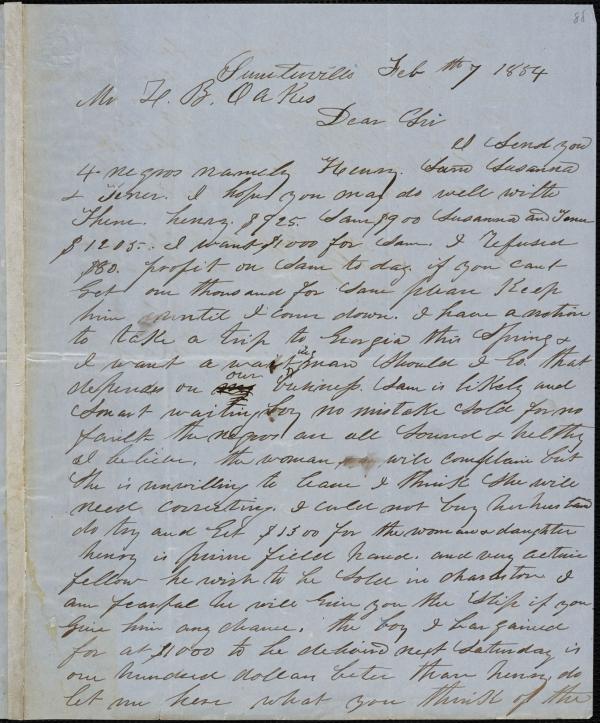 85
Sumterville Feb th 7 1854
Mr Z. B. Oakes
Dear Sir
I Send you
4 negros namely Henry. Sam Susanna
& Tener. I hope you may do well with
Them. henry. $925. Sam $900 Susanna and Tener
$1205. I want $1000 for Sam. I refused
$80. profit on Sam to day if you cant
Get one thousand for Sam please Keep
him until I come down. I have a notion
to take a trip to Georgia this Spring &
I want a waiting man Should I Go. that
depends on our business. Sam is likely and
Smart waiting boy no mistake Sold for no
fault the negros are all Sound & helthy
I believe. the woman, will complain but
She is unwilling to leave I think She will
need correcting. I could not buy her husband
do try and Git $1300 for the woman & daughter
henry is prime field hand. and very active
fellow he wish to be Sold in charleston I
am fearful he will Give you the Slip if you
Give him any chance. the boy I bargained
for at $1000 to be delivered next Saturday is
one hundred dollars beter than henry do
let me here what you think of the